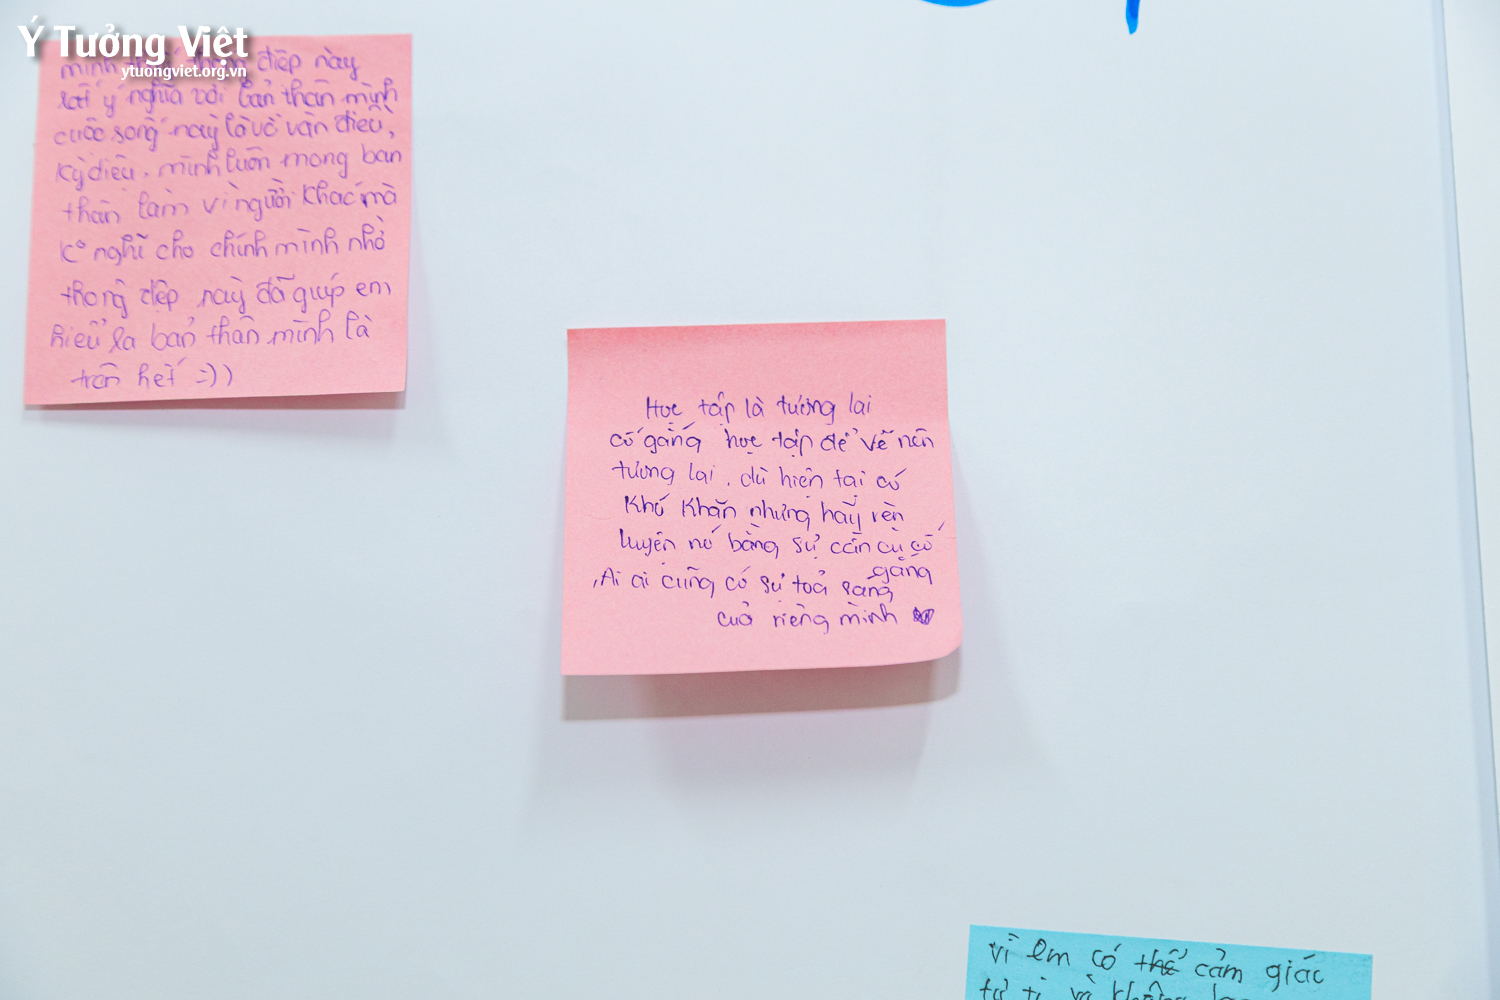 Ý Tưởng Việt
ytuongviet.org.vn
mình điệp này
rất ý nghĩa với bản thân mình
cuộc sống này là vô vàn điều,
kỳ diệu. mình luôn mong bản
thân làm vì người khác mà
ko nghĩ cho chính mình nhờ
thông điệp này đã giúp em
hiểu ra bản thân mình là
trên hết =))
Học tập là tương lai
cố gắng học tập để vẽ nên
tương lai, dù hiện tại có
khó khăn nhưng hãy rèn
luyện nó bằng sự cần cù cố
gắng
, Ai ai cũng có sự toả sáng
của riêng mình
vì em có thể cảm giác
tự ti và không